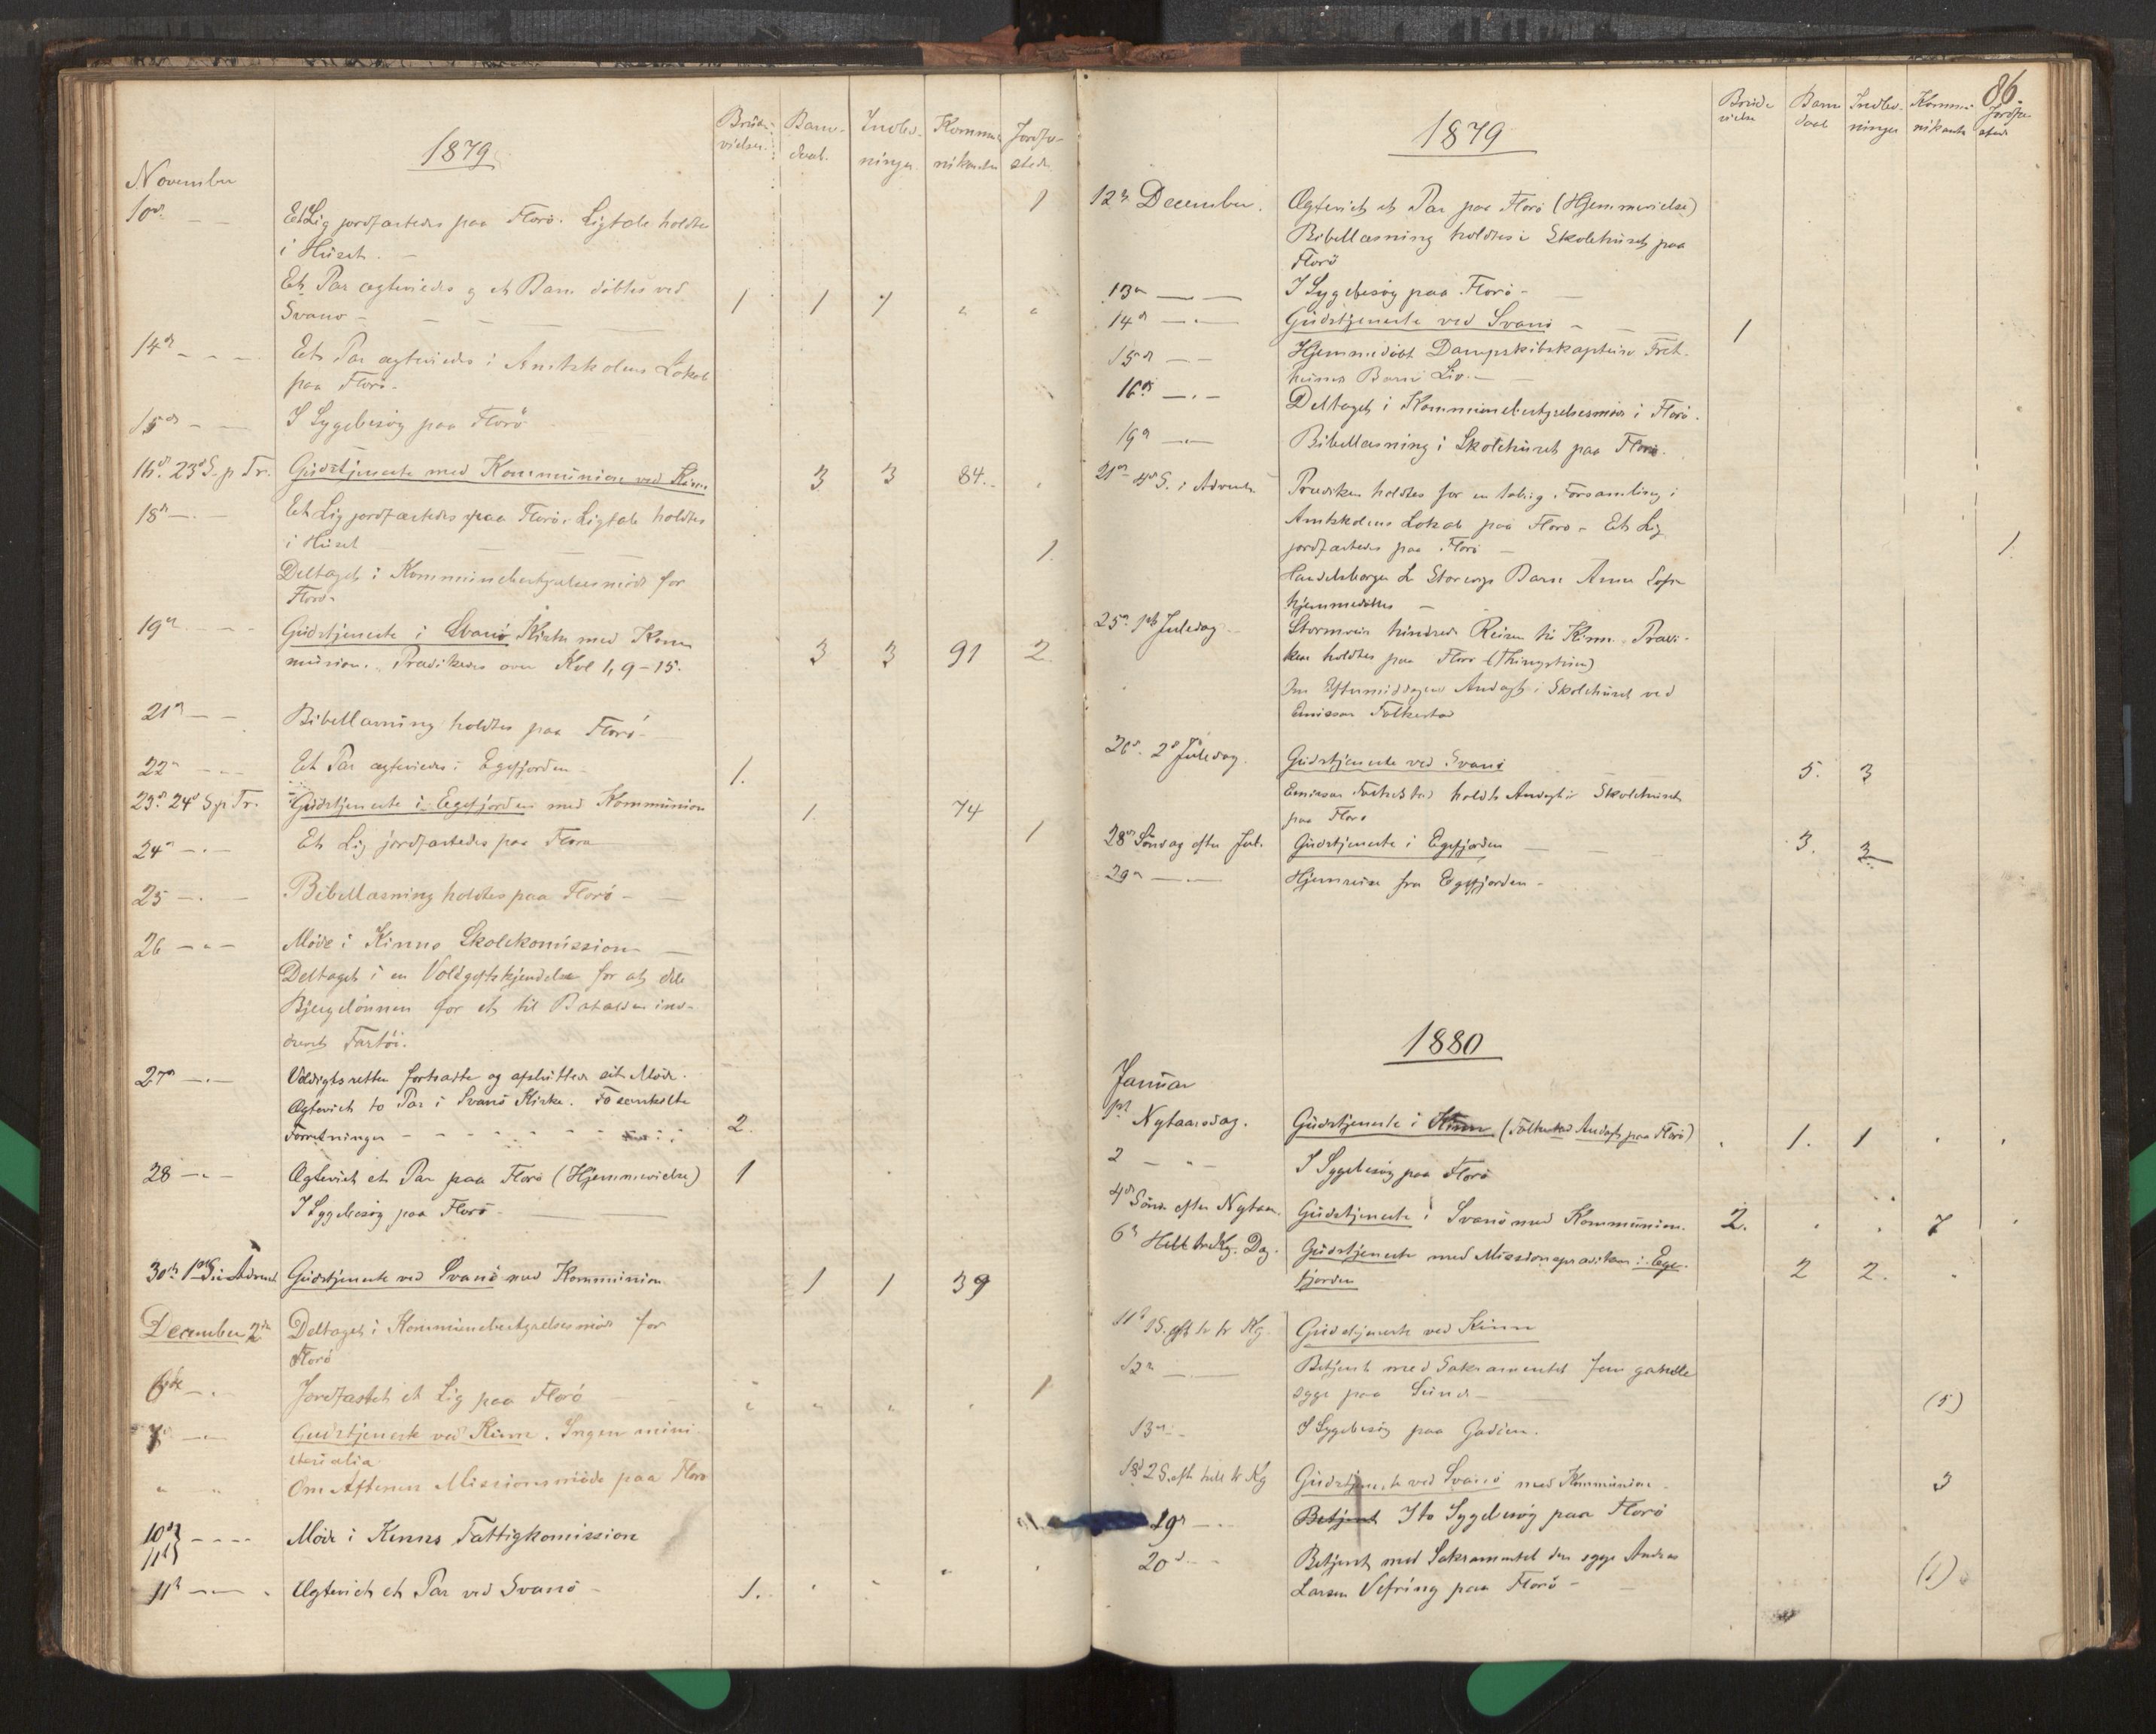 1879
Brude-
vielser.
Barne-
daab.
Indled-
ninger.
Kommu-
nikanter
Jordfæ-
stede.
November
10de Et Lig jordfæstedes paa Florö. Ligtale holdtes 1
i Huset.
Et Par ægteviedes og et Barn döbtes ved
Svanö 1 1 1 " "
14de Et Par ægteviedes i Amtskolens Lokal
paa Florö.
15de I Sygebesög paa Florö
16de 23de S. p Tr. Gudstjeneste med Kommunion ved Kinn 3 3 84.
18de Et Lig jordfæstedes paa Florö. Ligtale holdtes
i Huset 1.
Deltaget i Kommunebestyrelsesmöde for
Florö.
19de Gudstjeneste i Svanö Kirke med Kom
munion. Prædikedes over Kol 1, 9-15. 3 3 91 2
21de Bibellæsning holdtes paa Florö
22de Et Par ægteviedes i Egefjorden 1.
23de 24de S p Tr. Gudstjeneste i Egefjorden med Kommunion 1. 74
24de Et Lig jordfæstedes paa Florö 1
25 Bibellæsning holdtes paa Florö
26 Möde i Kinns Skolekomission
Deltaget i en Voldgiftskjendelse for at dele
Bjergelönnen for et til Batalden ind-
Fartöi.
27de Voldgiftsretten fortsatte og afsluttede sit Möde.
Ægteviet to Par i Svanö Kirke.
Forretninger 2.
28 Ægteviet et Par paa Florö (Hjemmevielse) 1
I Sygebesög paa Florö.
30te 1ste S i Advent Gudstjeneste ved Svanö med Kommunion 1 1 39
December 2de Deltaget i Kommunebestyrelsesmöde for
Florö
6te Jordfæstet et Lig paa Florö " " " " 1
7de Gudstjeneste ved Kinn. Ingen mini
sterialia.
" " Om Aftenen Missionsmöde paa Florö
10de
11te Möde i Kinns Fattigkomission
11te Ægteviet et Par ved Svanö 1.
86.
1879
Brude
vielse
Barne
daab
Indled-
ninger
Kommu-
nikanter
Jordfæ
stede
12te December. Ægteviet et Par paa Florö (Hjemmevielse)
Bibellæsning holdtes i Skolehuset paa
Florö
13de I Sygebesög paa Florö
14de Gudstjeneste ved Svanö 1
15de Hjemmedöbt Dampskibskaptein Fret-
heims Barn Liv.
16de Deltaget i Kommunebestyrelsesmöde i Florö.
19de Bibellæsning i Skolehuset paa Florö.
21de 4de S. i Advent. Prædiken holdtes for en talrig Forsamling i
Amtskolens Lokale paa Florö. Et Lig
jordfæstedes paa Florö 1.
Handelsborger L. Barn Anna Sofie
hjemmedöbtes
25de 1ste Juledag Stormveir hindrede Reisen til Kinn. Prædi-
ken holdtes paa Florö (Thingstuen)
Om Eftermiddagen Andagt i Skolehuset ved
Emissær Folkestad
26de 2de Juledag. Gudstjeneste ved Svanö 5. 3
Emissær Folkestad holdt Andagt i Skolehuset
paa Florö
28de Söndag efter Jul. Gudstjeneste i Egefjorden 3. 3
29de Hjemreise fra Egefjorden
1880
Januar
1ste Nytaarsdag. Gudstjeneste i Kinn (Folkestad Andagt paa Florö) 1. 1
2 I Sygebesög paa Florö
4de Sönd. efter Nytaar. Gudstjeneste i Svanö med Kommunion. 2. 7
6te Hell. tr. Kg. Dag. Gudstjeneste med Missionsprædiken i Ege-
fjorden 2 2.
11te 1 S. eft h tr Kg. Gudstjeneste ved Kinn
12te Betjent med Sakramentet fem gamle
syge paa (5)
13de I Sygebesög paa
18de 2 S. eft hell tr Kg Gudstjeneste ved Svanö med Kommunion 3
19de Betjent I to Sygebesög paa Florö
20de Betjent med Sakramentet den syge Andreas
Larsen Vefring paa Florö (1)